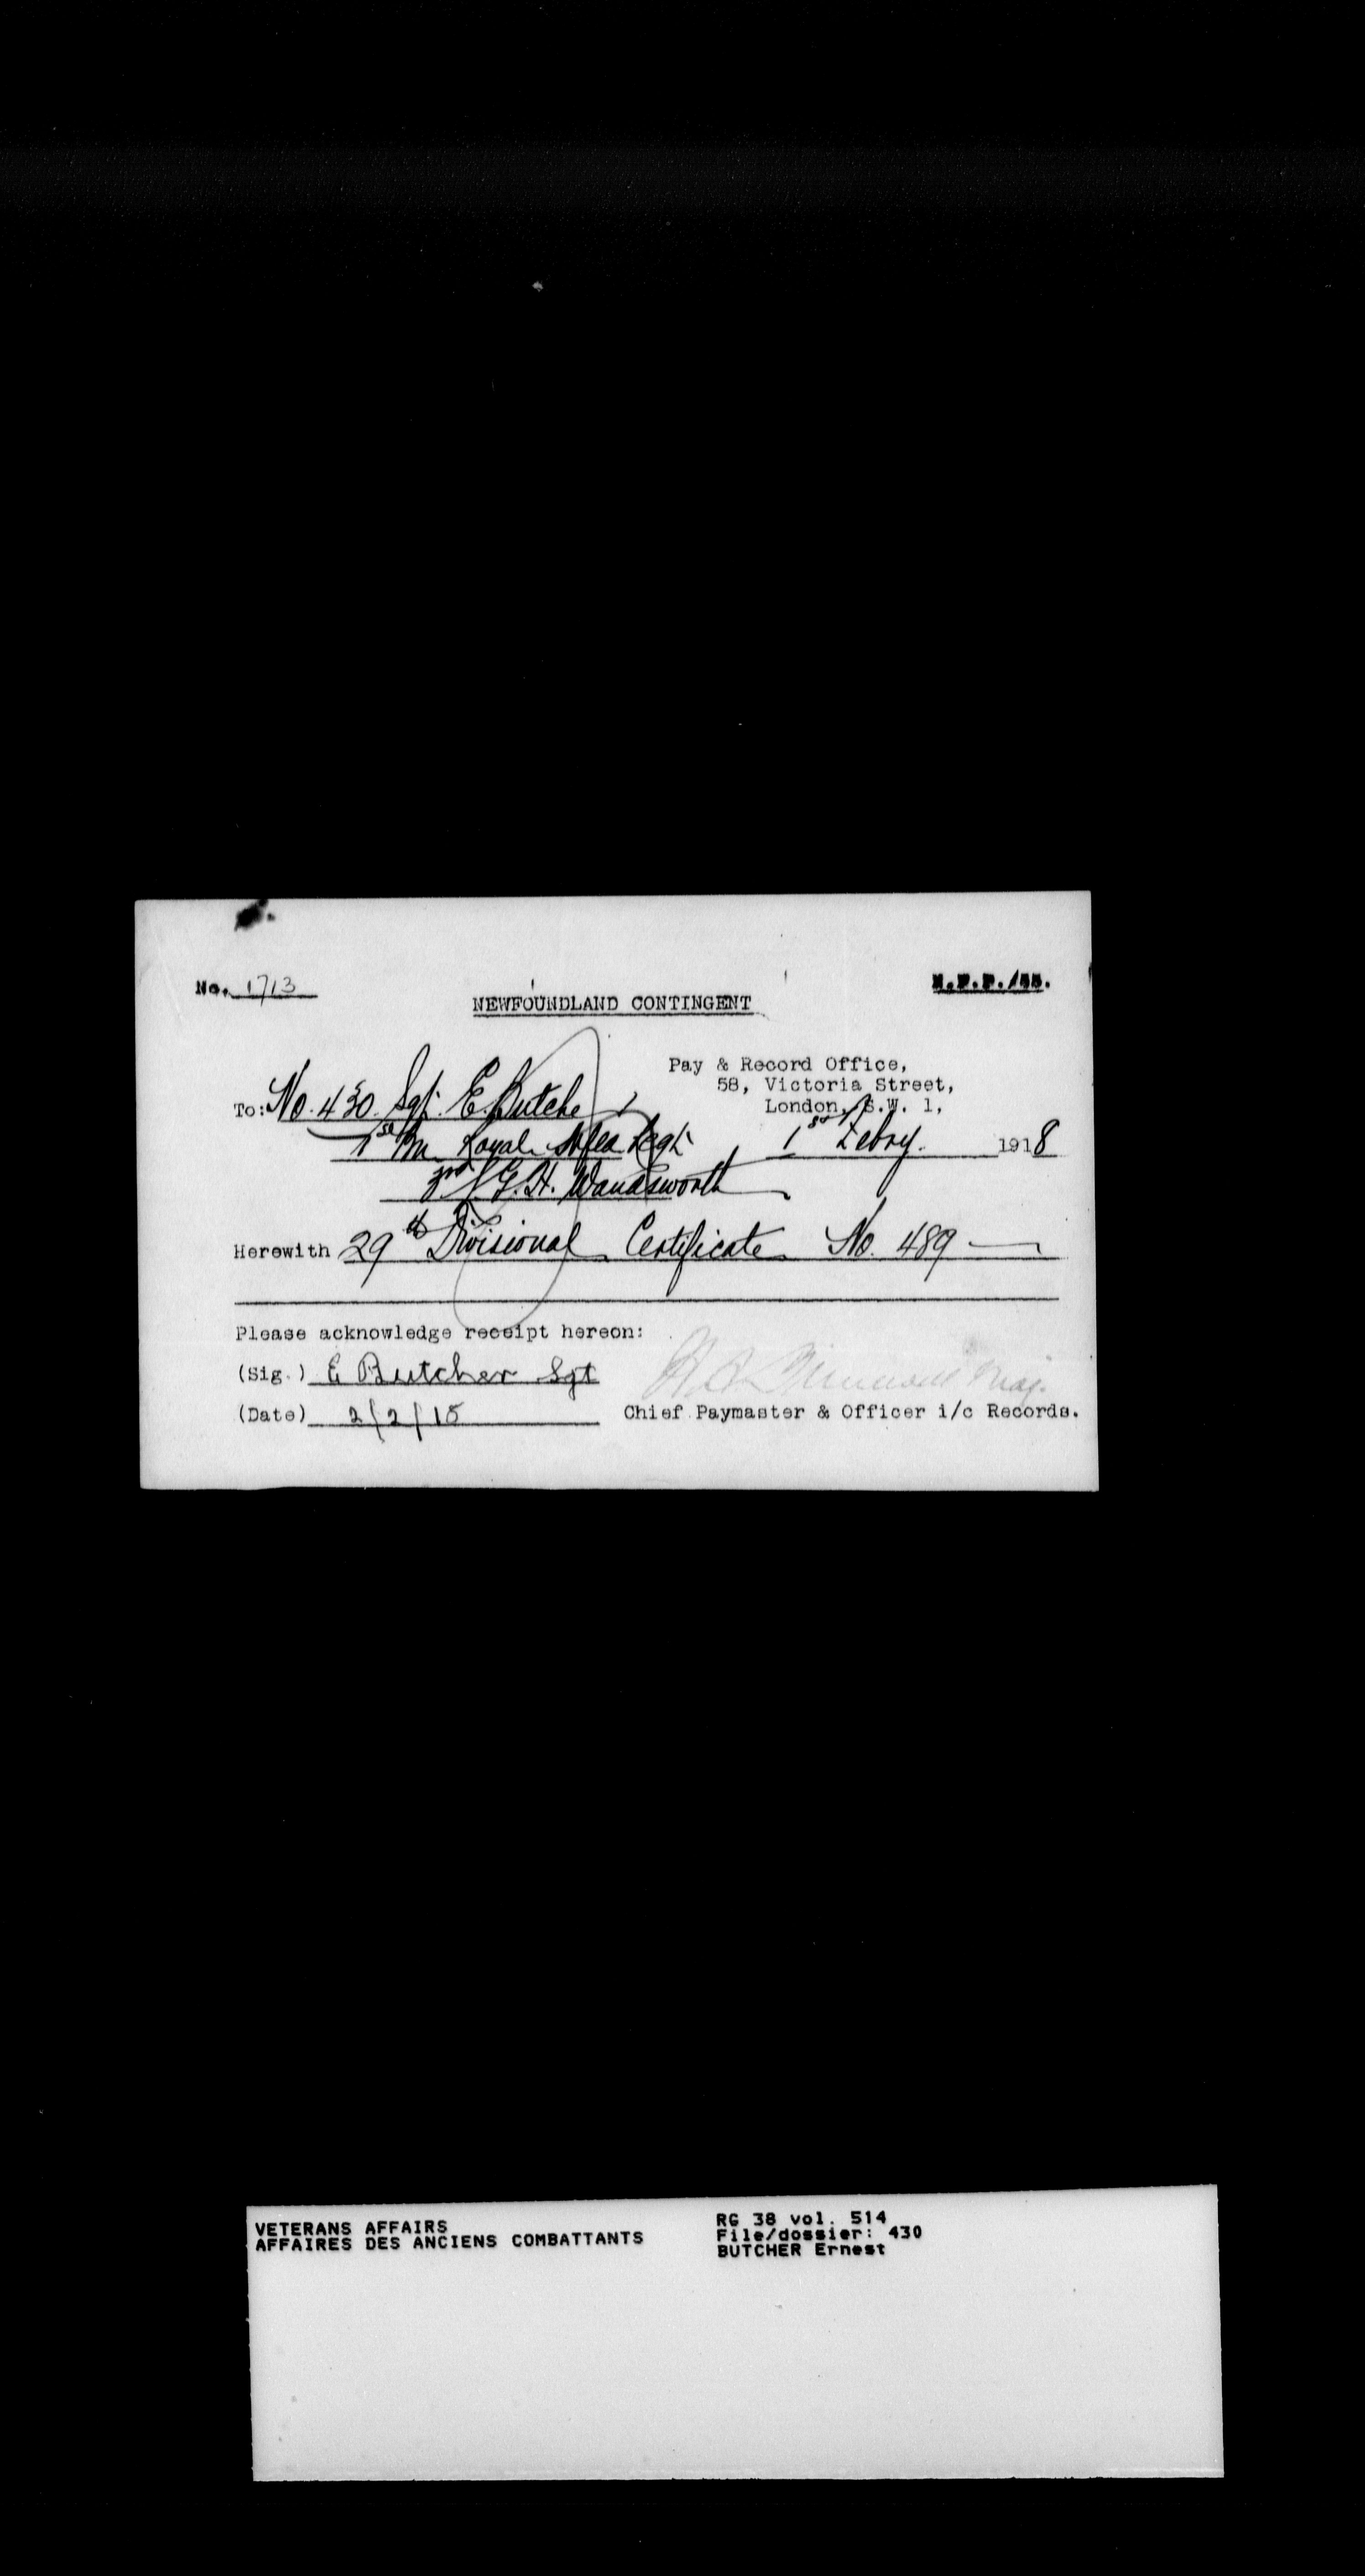 No. 1713
N.F.P./55.
NEWFOUNDLAND CONTINGENT
Pay & Record Office,
58, Victoria Street,
London, S.W. 1,
To: No. 430. Sgt. E. Butcher
1st Bn. Royal Nfld Regt.
1st Febry. 1918
3rd L.G.H. Wandsworth
Herewith 29th Divisional Certificate No. 489
Please acknowledge receipt hereon:
(Sig.) E Butcher Sgt
Maj.
(Date) 2/2/18
Chief Paymaster & Officer i/c Records.
VETERANS AFFAIRS
AFFAIRES DES ANCIENS COMBATTANTS
RG 38 vol. 514
File/dossier: 430
BUTCHER Ernest